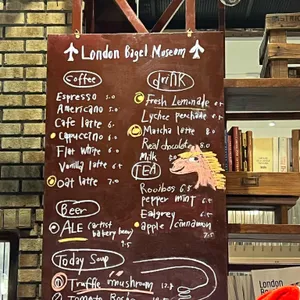 London Bagel Museum
Coffee
Espresso 5.0
Americano 5.0
Cafe latte 6.
Cappuccino 6.0
Flat white 6.0
Vanilla latte
Oat latte 7.0
Beer
ALE (artist bakery beer)
9.5
Today Soup
Truffle mushroom 12.
drink
Fresh Lemonade
Lychee
Matcha latte 8.0
Real chocolate 8.0
Milk
TEA
Rooibos 6.5
pepper mint 6.
Ealgrey 6.5
apple / cinnamon
7.5
London
Bagel